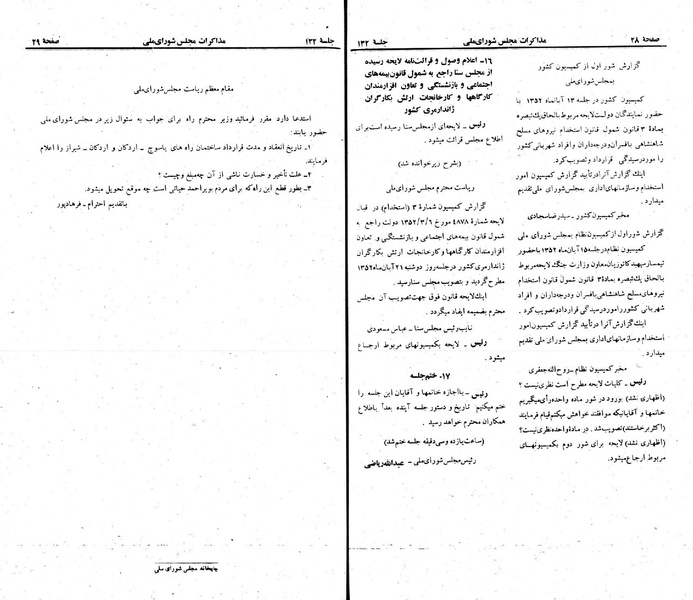 صفحهٔ ۲۸
مذاکرات مجلس شورای‌ملی
جلسهٔ ۱۳۲
گزارش شور اول از کمیسیون کشور
بمجلس‌شورای‌ملی
کمیسیون کشور در جلسه ۱۳ آبانماه ۱۳۵۲ با
حضور نمایندگان دولت لایحه مربوط بالحاق یک تبصره
بمادهٔ ۳ قانون شمول قانون استخدام نیروهای مسلح
شاهنشاهی بافسران و درجه‌داران و افراد شهربانی کشور
را مورد رسیدگی قرارداد و تصویب کرد.
اینک گزارش آنرا در تأیید گزارش کمیسیون امور
استخدام و سازمانهای اداری بمجلس شورای ملی تقدیم
میدارد.
مخبر کمیسیون کشور ـ سیدرضا سجادی
گزارش شور اول از کمیسیون نظام بمجلس شورای ملی
کمیسیون نظام در جلسه ۱۵ آبان ماه ۱۳۵۲ با حضور
تیمسار سپهبد کاتوزیان معاون وزارت جنگ لایحه مربوط
بالحاق یک تبصره بمادهٔ ۳ قانون شمول قانون استخدام
نیروهای مسلح شاهنشاهی بافسران و درجه‌داران و افراد
شهربانی کشور را مورد رسیدگی قرارداد و تصویب کرد.
اینک گزارش آنرا در تأیید گزارش کمیسیون امور
استخدام و سازمانهای اداری بمجلس شورای ملی تقدیم
میدارد.
مخبر کمیسیون نظام ـ روح‌الله جعفری
رئیس ـ کلیات لایحه مطرح است نظری نیست؟
(اظهاری نشد) بورود در شور ماده واحده رأی میگیریم
خانمها و آقایانیکه موافقند خواهش میکنم قیام فرمایند
(اکثر برخاستند) تصویب شد. در مادهٔ واحده نظری نیست؟
(اظهاری نشد) لایحه برای شور دوم بکمیسیونهای
مربوط ارجاع میشود.
۱۶ـ اعلام وصول و قرائت‌نامه لایحه رسیده
از مجلس سنا راجع به شمول قانون بیمه‌های
اجتماعی و بازنشستگی و تعاون افزارمندان
کارگاهها و کارخانجات ارتش بکارگران
ژاندارمری کشور
رئیس ـ لایحه‌ای از مجلس سنا رسیده است برای
اطلاع مجلس قرائت میشود.
(بشرح زیر خوانده شد)
ریاست محترم مجلس شورای ملی
گزارش کمیسیون شمارهٔ ۳ (استخدام) در قبال
لایحه شمارهٔ ۴۸۷۸ مورخ ۱۳۵۲/۳/۶ دولت راجع به
شمول قانون بیمه‌های اجتماعی و بازنشستگی و تعاون
افزارمندان کارگاهها و کارخانجات ارتش بکارگران
ژاندارمری کشور در جلسه روز دوشنبه ۲۱ آبان ماه ۱۳۵۲
مطرح گردید و بتصویب مجلس سنا رسید.
اینک لایحه قانون فوق جهت تصویب آن مجلس
محترم بضمیمه ایفاد میگردد.
نایب رئیس مجلس سنا ـ عباس مسعودی
رئیس ـ لایحه بکمیسیونهای مربوط ارجاع
میشود.
۱۷ـ ختم جلسه
رئیس ـ با اجازه خانمها و آقایان این جلسه را
ختم میکنیم تاریخ و دستور جلسه آینده بعداً باطلاع
همکاران محترم خواهد رسید.
(ساعت یازده وسی دقیقه جلسه ختم شد)
رئیس مجلس شورای ملی ـ عبدالله ریاضی
جلسهٔ ۱۳۲
مذاکرات مجلس شورای‌ملی
صفحهٔ ۲۹
مقام معظم ریاست مجلس شورای ملی
استدعا دارد مقرر فرمائید وزیر محترم راه برای جواب به سئوال زیر در مجلس شورای ملی
حضور یابند:
۱ـ تاریخ انعقاد و مدت قرارداد ساختمان راه های یاسوج ـ اردکان و اردکان ـ شیراز را اعلام
فرمایند.
۲ـ علت تأخیر و خسارت ناشی از آن چه مبلغ و چیست؟
۳ـ بطور قطع این راه که برای مردم بویراحمد حیاتی است چه موقع تحویل میشود.
باتقدیم احترام ـ فرهادپور
چاپخانه مجلس شورای ملی